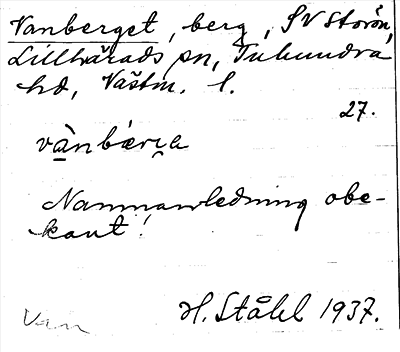 Vanberget, berg, SV Storön,
Lillhärads sn, Tuhundra
hd, Västm. l.
27.
vànbærıa
Namnanledning obe-
kant!
H. Ståhl 1937.
Van